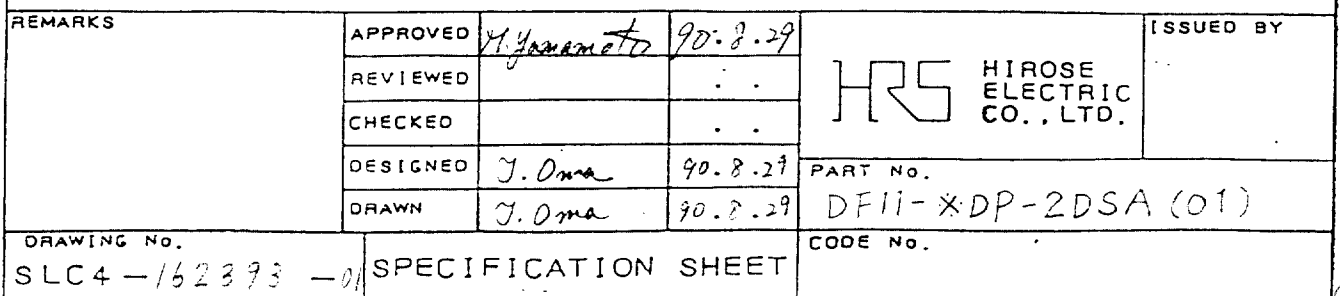 REMARKS
APPROVED M. Yamamoto 90.8.29
REVIEWED . .
CHECKED . .
DESIGNED T. Oma 90.8.29
DRAWN T. Oma 90.8.29
HRS HIROSE
ELECTRIC
CO.,LTD.
ISSUED BY
PART No.
DF11-※DP-2DSA(01)
DRAWING No.
SLC4-162393-01
SPECIFICATION SHEET
CODE No.